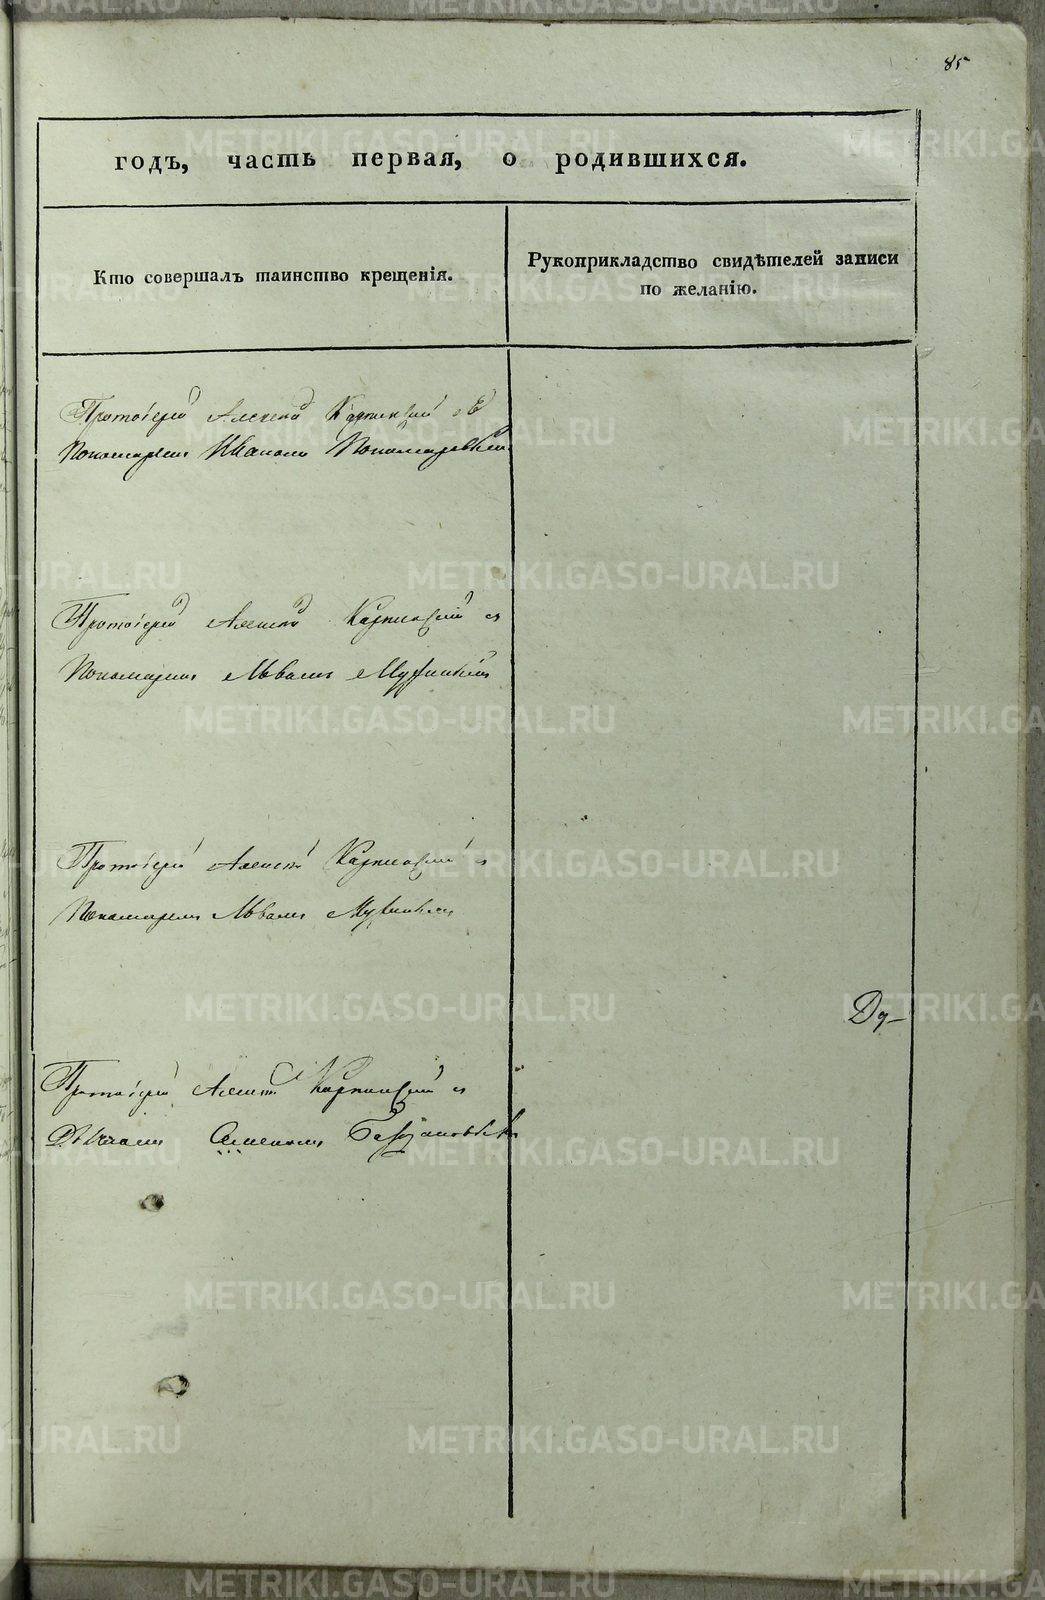 85
годъ, часть первая, о родившихся.
Кто совершалъ таинство крещенія.
Рукоприкладство свидѣтелей записи
по желанію.
Протоіерей Алексѣй Карпинскій съ
Пономаремъ Иваномъ Пономаревымъ
Протоіерей Алексѣй Карпинскій съ
Пономаремъ Львомъ
Протоіерей Алексѣй Карпинскій съ
Пономаремъ Львомъ
До-
Протоіерей Алексѣй Карпинскій съ
Дьячкомъ Семеномъ
METRIKI.GASO-URAL.RU